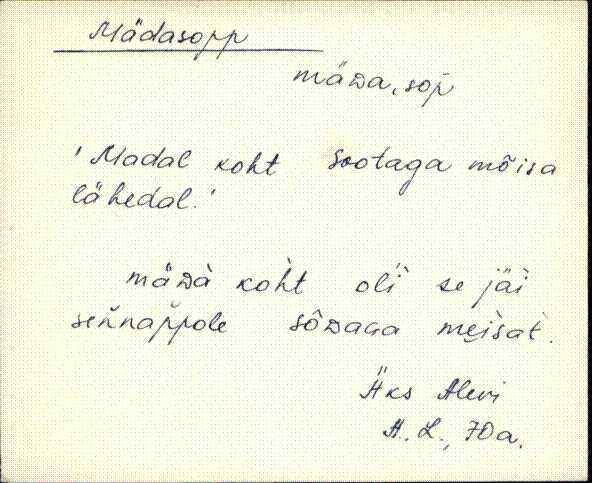 Mädasopp
mäDa, sop̆
'Madal koht Sootaga mõisa
lähedal.'
mäDà kòht olì se jäì
sen̆nap̆pole sôDaGa meìsat.
Äks Alevi
A. L., 70a.